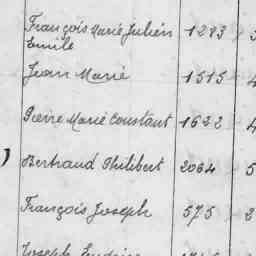 François Marie Julien 1283
Emile
Jean Marie 1515 4
Pierre Marie Constant 1622 4
) Bertrand Philibert 2064 5
François Joseph 575 2
Joseph